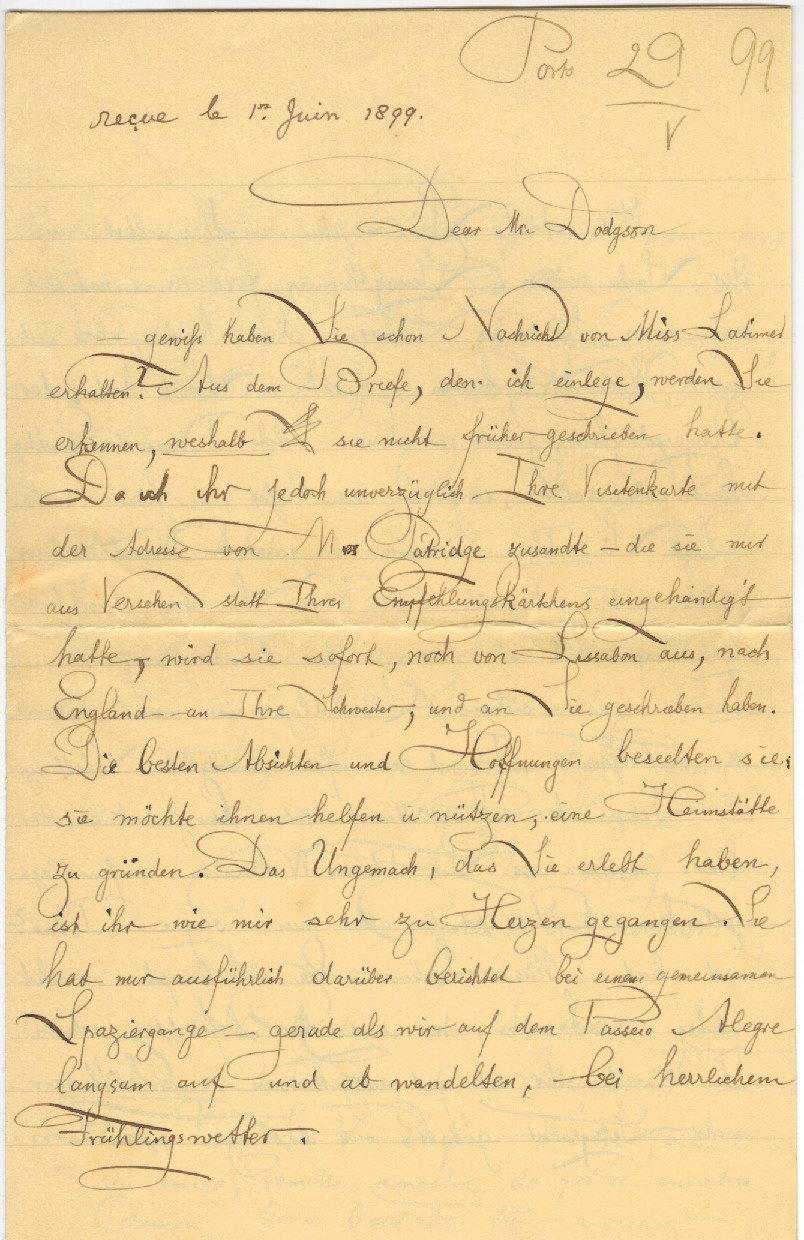 Porto 29/V 99
reçue le 1er Juin 1899.
Dear Mr. Dodgson
— gewiß haben Sie schon Nachricht von Miss Latimer
erhalten? Aus dem Briefe, den ich einlege, werden Sie
erkennen, weshalb sie nicht früher geschrieben hatte.
Da ich ihr jedoch unverzüglich Ihre Visitenkarte mit
der Adresse von Mrs Pátridge zusandte — die sie mir
aus Versehen statt Ihres Empfehlungskärtchens eingehändigt
hatte, wird sie sofort, noch von Lissabon aus, nach
England — an Ihre Schwester, und an Sie geschrieben haben.
Die besten Absichten und Hoffnungen beseelten sie:
sie möchte ihnen helfen u nützen, eine Heimstätte
zu gründen. Das Ungemach, das Sie erlebt haben,
ist ihr wie mir sehr zu Herzen gegangen. Sie
hat mir ausführlich darüber berichtet bei einem gemeinsamen
Spaziergange — gerade als wir auf dem Passeio Alegre
langsam auf und ab wandelten, bei herrlichem
Frühlingswetter.